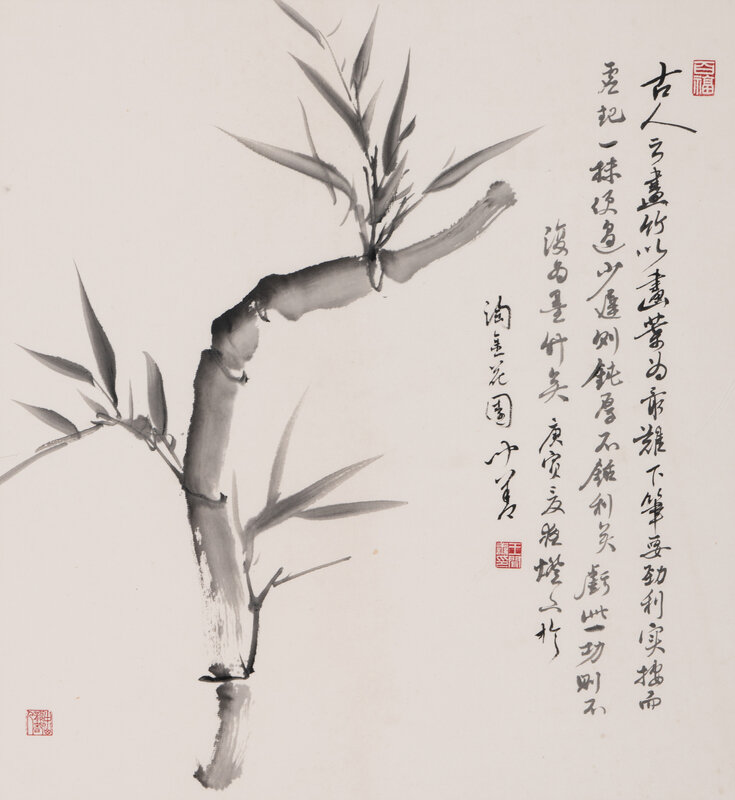 古人云畫竹以畫葉為最難下筆要勁利實按而
虛起一抹便過少遲則鈍厚不銛利矣虧此一功則不
復為墨竹矣 庚寅夏夜燈下於
淘金花園
百福